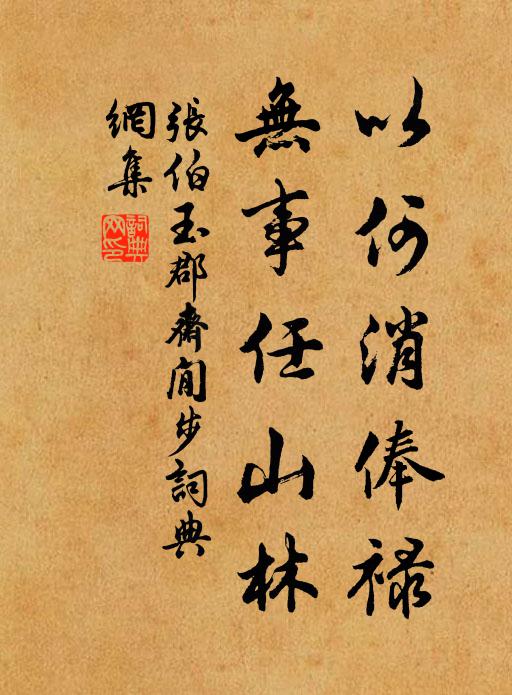 以何消俸祿
無事任山林
張伯玉郡齋閒步詞典
網集
詞典
網印